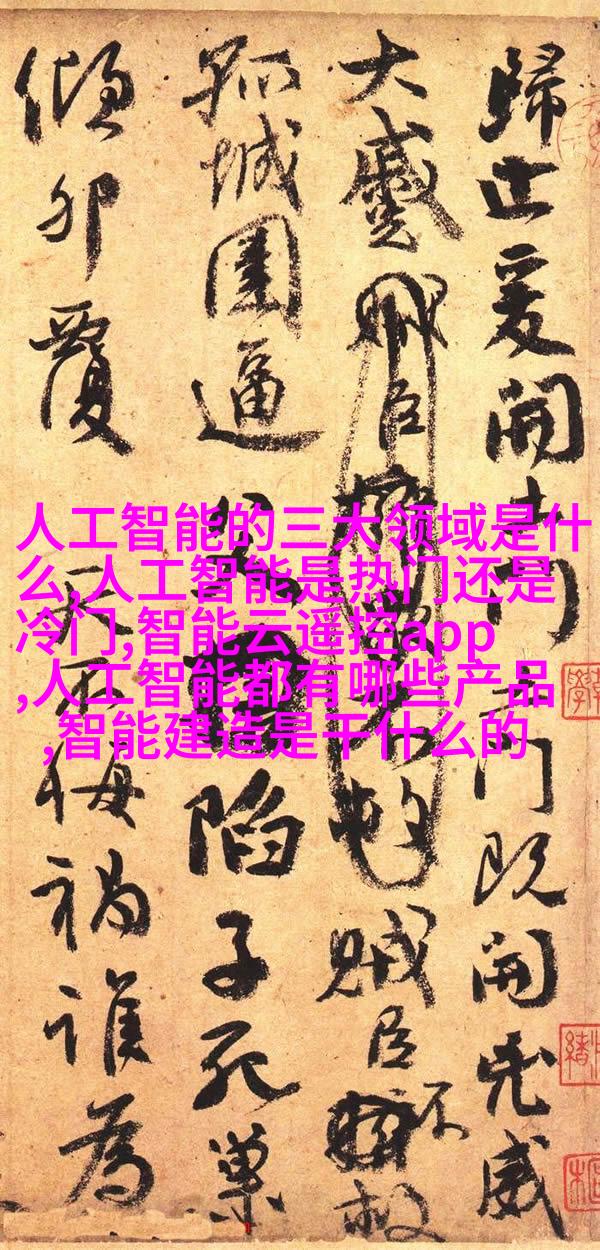 歸止爰開土門土門既開兇威
大蹙賊臣不救
孤城圍逼父陷子死巢
傾卵覆天不悔禍誰為
人工智能的三大领域是什
么,人工智能是热门还是
冷门,智能云遥控app
,人工智能都有哪些产品
,智能建造是干什么的